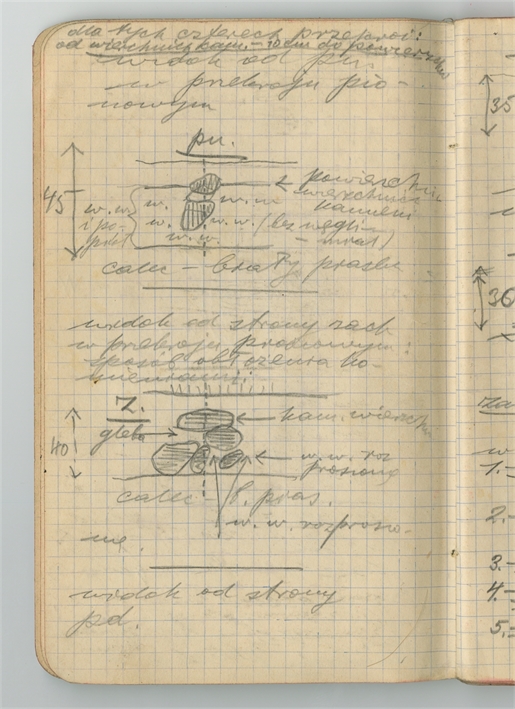 dla tych czterech przekroi:
od wierzchnich kam. - 10 cm do powierzchni
widok od pn.
w przekroju pio-
nowym
pn.
45
powierzchnia
wierzchnich
kamieni
w. w.
w. w. w. w.
i po-
w. w. w. (bez węgli
w. w. - miał)
calec - biały piasek
widok od strony zach
w przekroju pionowym:
sposób obłożenia ka-
mieniami:
Z.
kam. wierzchni
gleba
40
w. w. roz
proszone
calec - b. pias.
w. w. rozproszo-
ne.
widok od strony
pd.
35
36
za
w
1.-
2.-
3.-
4.-
5.-